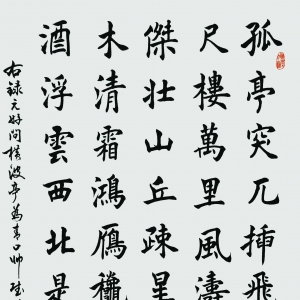 孤亭突兀插飛
尺樓萬里風濤
傑壯山丘疎星
木清霜鴻鴈穐
酒浮雲西北是
右録元好問橫波亭為青口帥